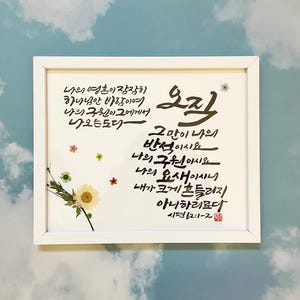 나의 영혼이 잠잠히
하나님만 바람이여
나의 구원이 그에게서
나오는도다
오직
그만이 나의
반석이시요
나의 구원이시요
나의 요새이시니
내가 크게 흔들리지
아니하리로다
시편 62:1-2